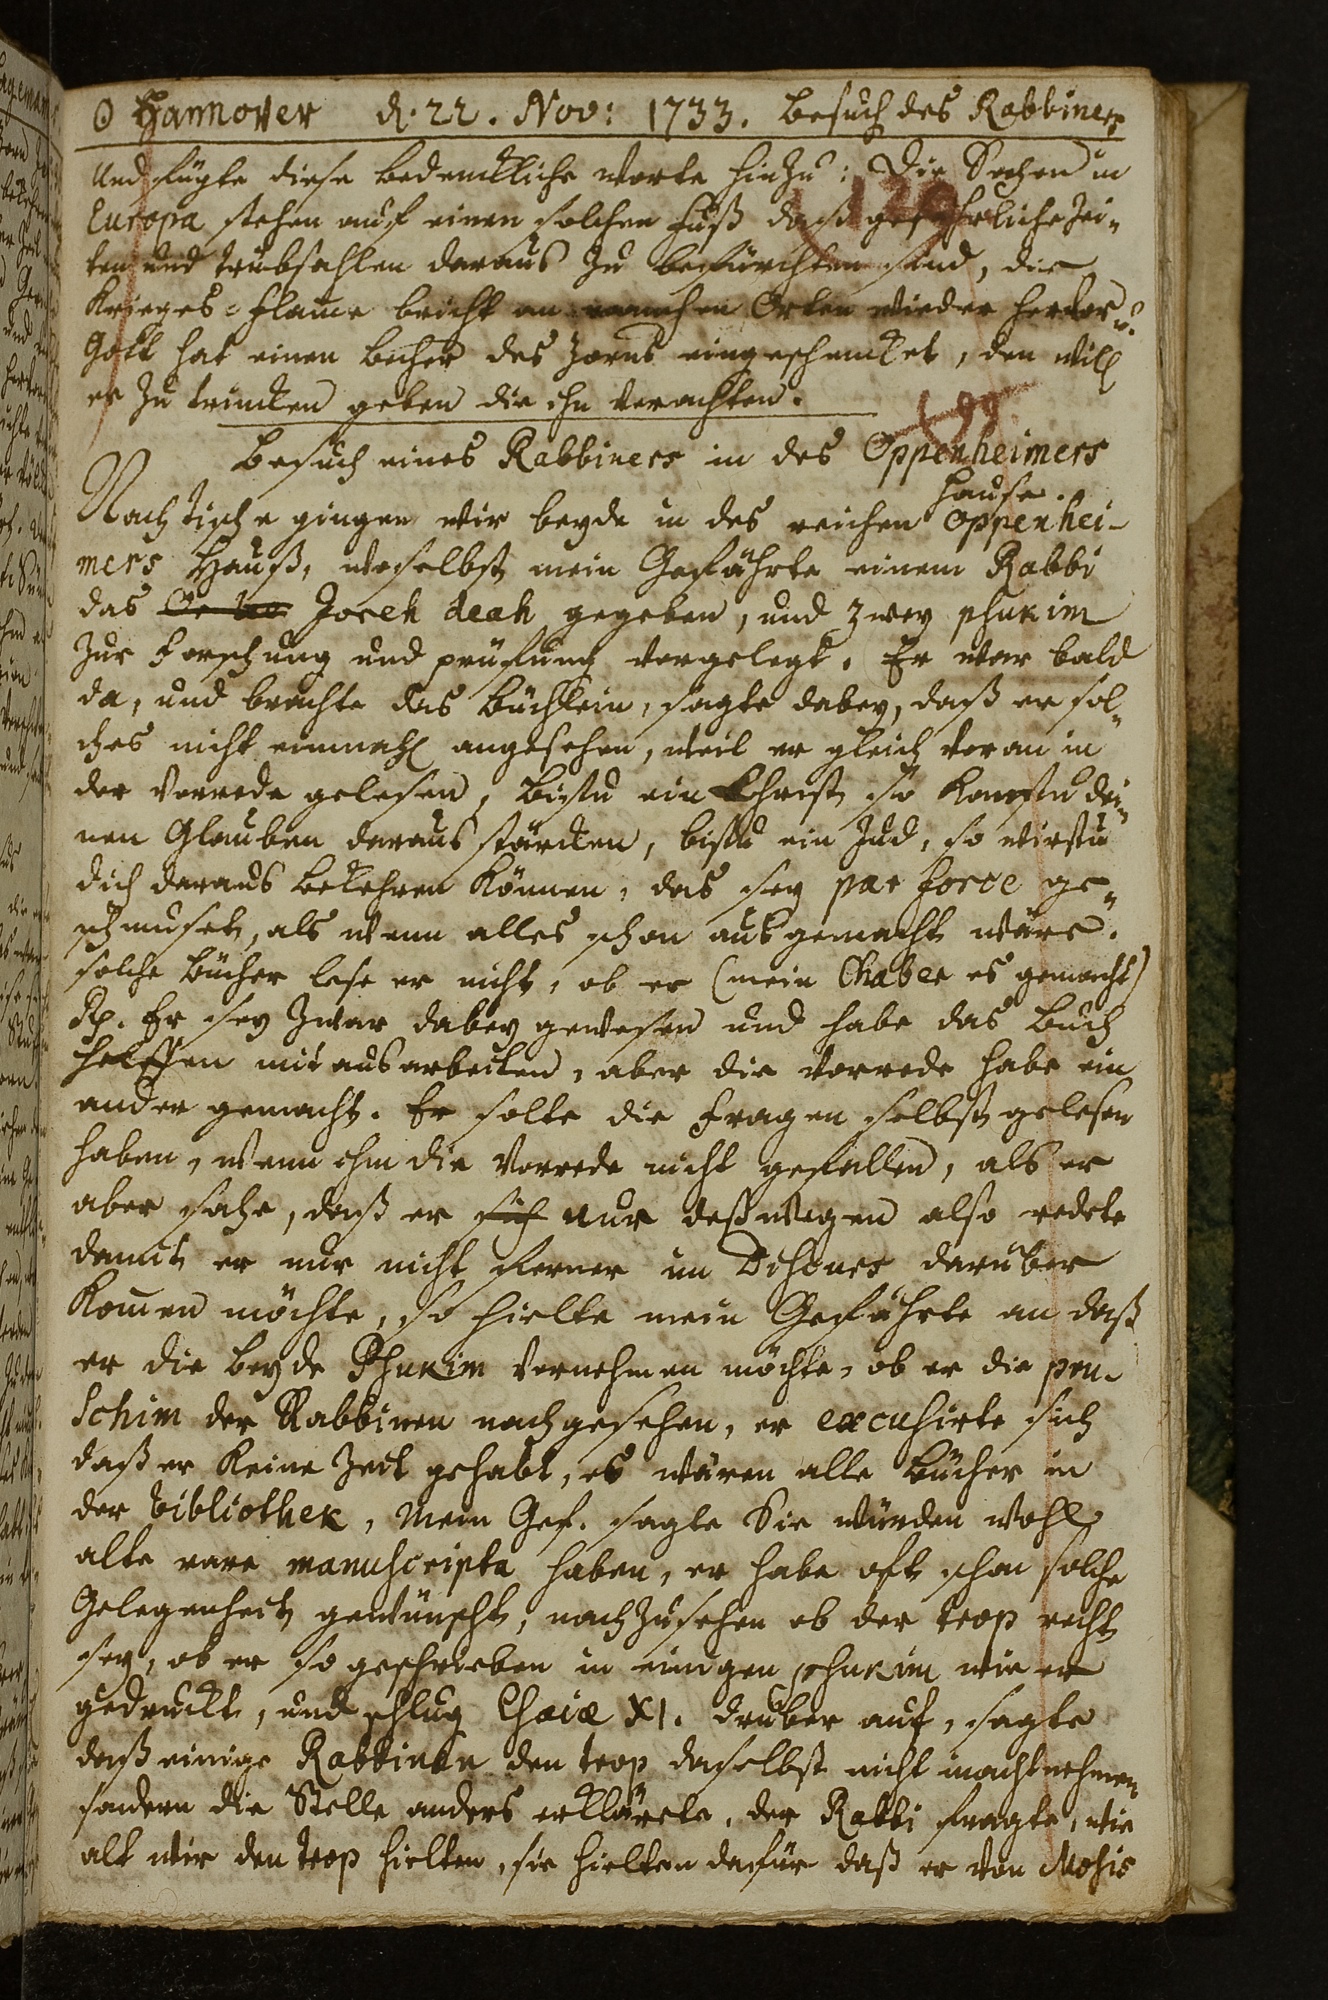 ☉ Hannover d. 22. Nov: 1733. Besuch des Rabbiners
und fügte diese bedenckliche Worte hinzu: Die Sachen in
Europa stehen auf einen solchen Fuß daß gefährliche Zei-
ten und trübsahlen daraus zu befürchten sind, die
Krieges-Flame bricht an manchen Orten wieder hervor u.
Gott hat einen becher des Zorns eingeschencket, den will
er zu trincken geben die ihn verachten.
199.
Besuch eines Rabbiners in des Oppenheimers
Hause.
Nach Tische gingen wir beyde in des reichen Oppenhei-
mers Hauß, woselbst mein Gefährte einem Rabbi
das Joreh deah gegeben, und zwey phukim
zur Forschung und prüfung vorgelegt. Er war bald
da, und brachte das Büchlein, sagte dabey, daß er sol-
ches nicht einmahl angesehen, weil er gleich voran in
der Vorrede gelesen, bistu ein Christ so kanstu dei-
nen Glauben daraus stärcken, bistu ein Jud, so wirstu
dich daraus bekehren können, das sey par force ge-
schmuset, als wenn alles schon ausgemacht wäre.
solche bücher lese er nicht, ob er (mein Chaber es gemacht)
Rp. Er sey zwar dabey gewesen und habe das Buch
helffen mit ausarbeiten, aber die Vorrede habe ein
ander gemacht. Er solte die Fragen selbst gelesen
haben, wenn ihm die Vorrede nicht gefallen, als er
aber sahe, daß er sich nur deßwegen also redete
damit er nur nicht ferner im Dischours darüber
komen möchte, so hielte mein Gefährte an daß
er die beyde Phukim vornehmen möchte, ob er die peru-
schim der Rabbinen nachgesehen, er excusirte sich
daß er keine Zeit gehabt, es wären alle Bücher in
der bibliothek, Mein Gef. sagte Sie würden wohl
alte rare manuscripta haben, er habe oft schon solche
Gelegenheit gewünscht, nachzusehen ob der trop recht
sey, ob er so geschrieben in einigen phukim wie er
gedruckt, und schlug Esaiæ XI. drüber auf, sagte
daß einige Rabbinen den trop daselbst nicht in acht nehmen
sondern die Stelle anders erklärete, der Rabbi fragte, wie
alt wir den trop hielten, sie hielten dafür daß er von Mosis